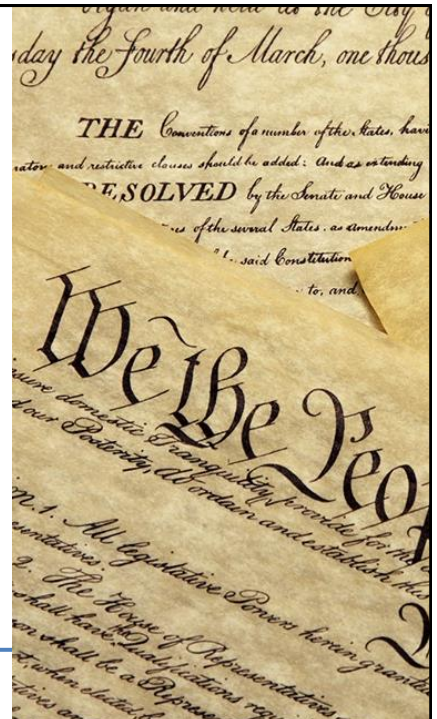 day the Fourth of March, one thous
THE Conventions of a number of the States, havi
and restrictive clauses should be added: And as extending
RESOLVED by the Senate and House
of the several States, as amendme
said Constitution
to, and
We the Peo
sure domestic Tranquility, provide for the
our Posterity, do ordain and establish this
1. All legislative Powers herein grante
2. The House of Representatives
shall have the Qualifications req
shall be a Represe
when elected